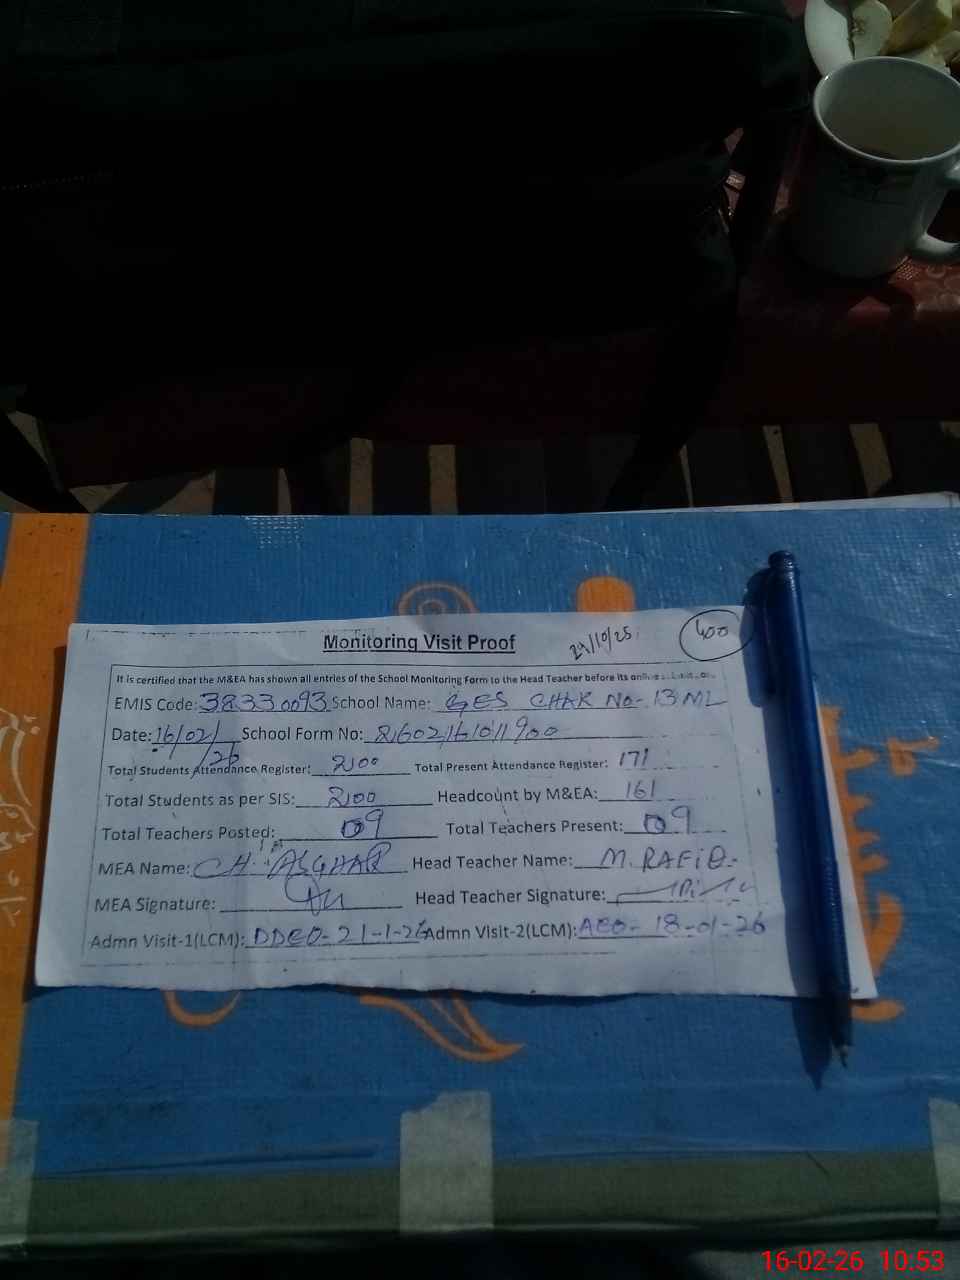 Monitoring Visit Proof 24/10/25 400
It is certified that the M&EA has shown all entries of the School Monitoring Form to the Head Teacher before its online
EMIS Code: 38330093 School Name: GES CHAK NO- 13 ML
Date: 16/02/26 School Form No: 21602161011900
Total Students Attendance Register: 200 Total Present Attendance Register: 171
Total Students as per SIS: 200 Headcount by M&EA: 161
Total Teachers Posted: 09 Total Teachers Present: 09
MEA Name: CH. ASGHAR Head Teacher Name: M. RAFIQ-
MEA Signature: Head Teacher Signature:
Admn Visit-1(LCM): DDEO- 21-1-26 Admn Visit-2(LCM): AEO- 18-01-26
16-02-26 10.53